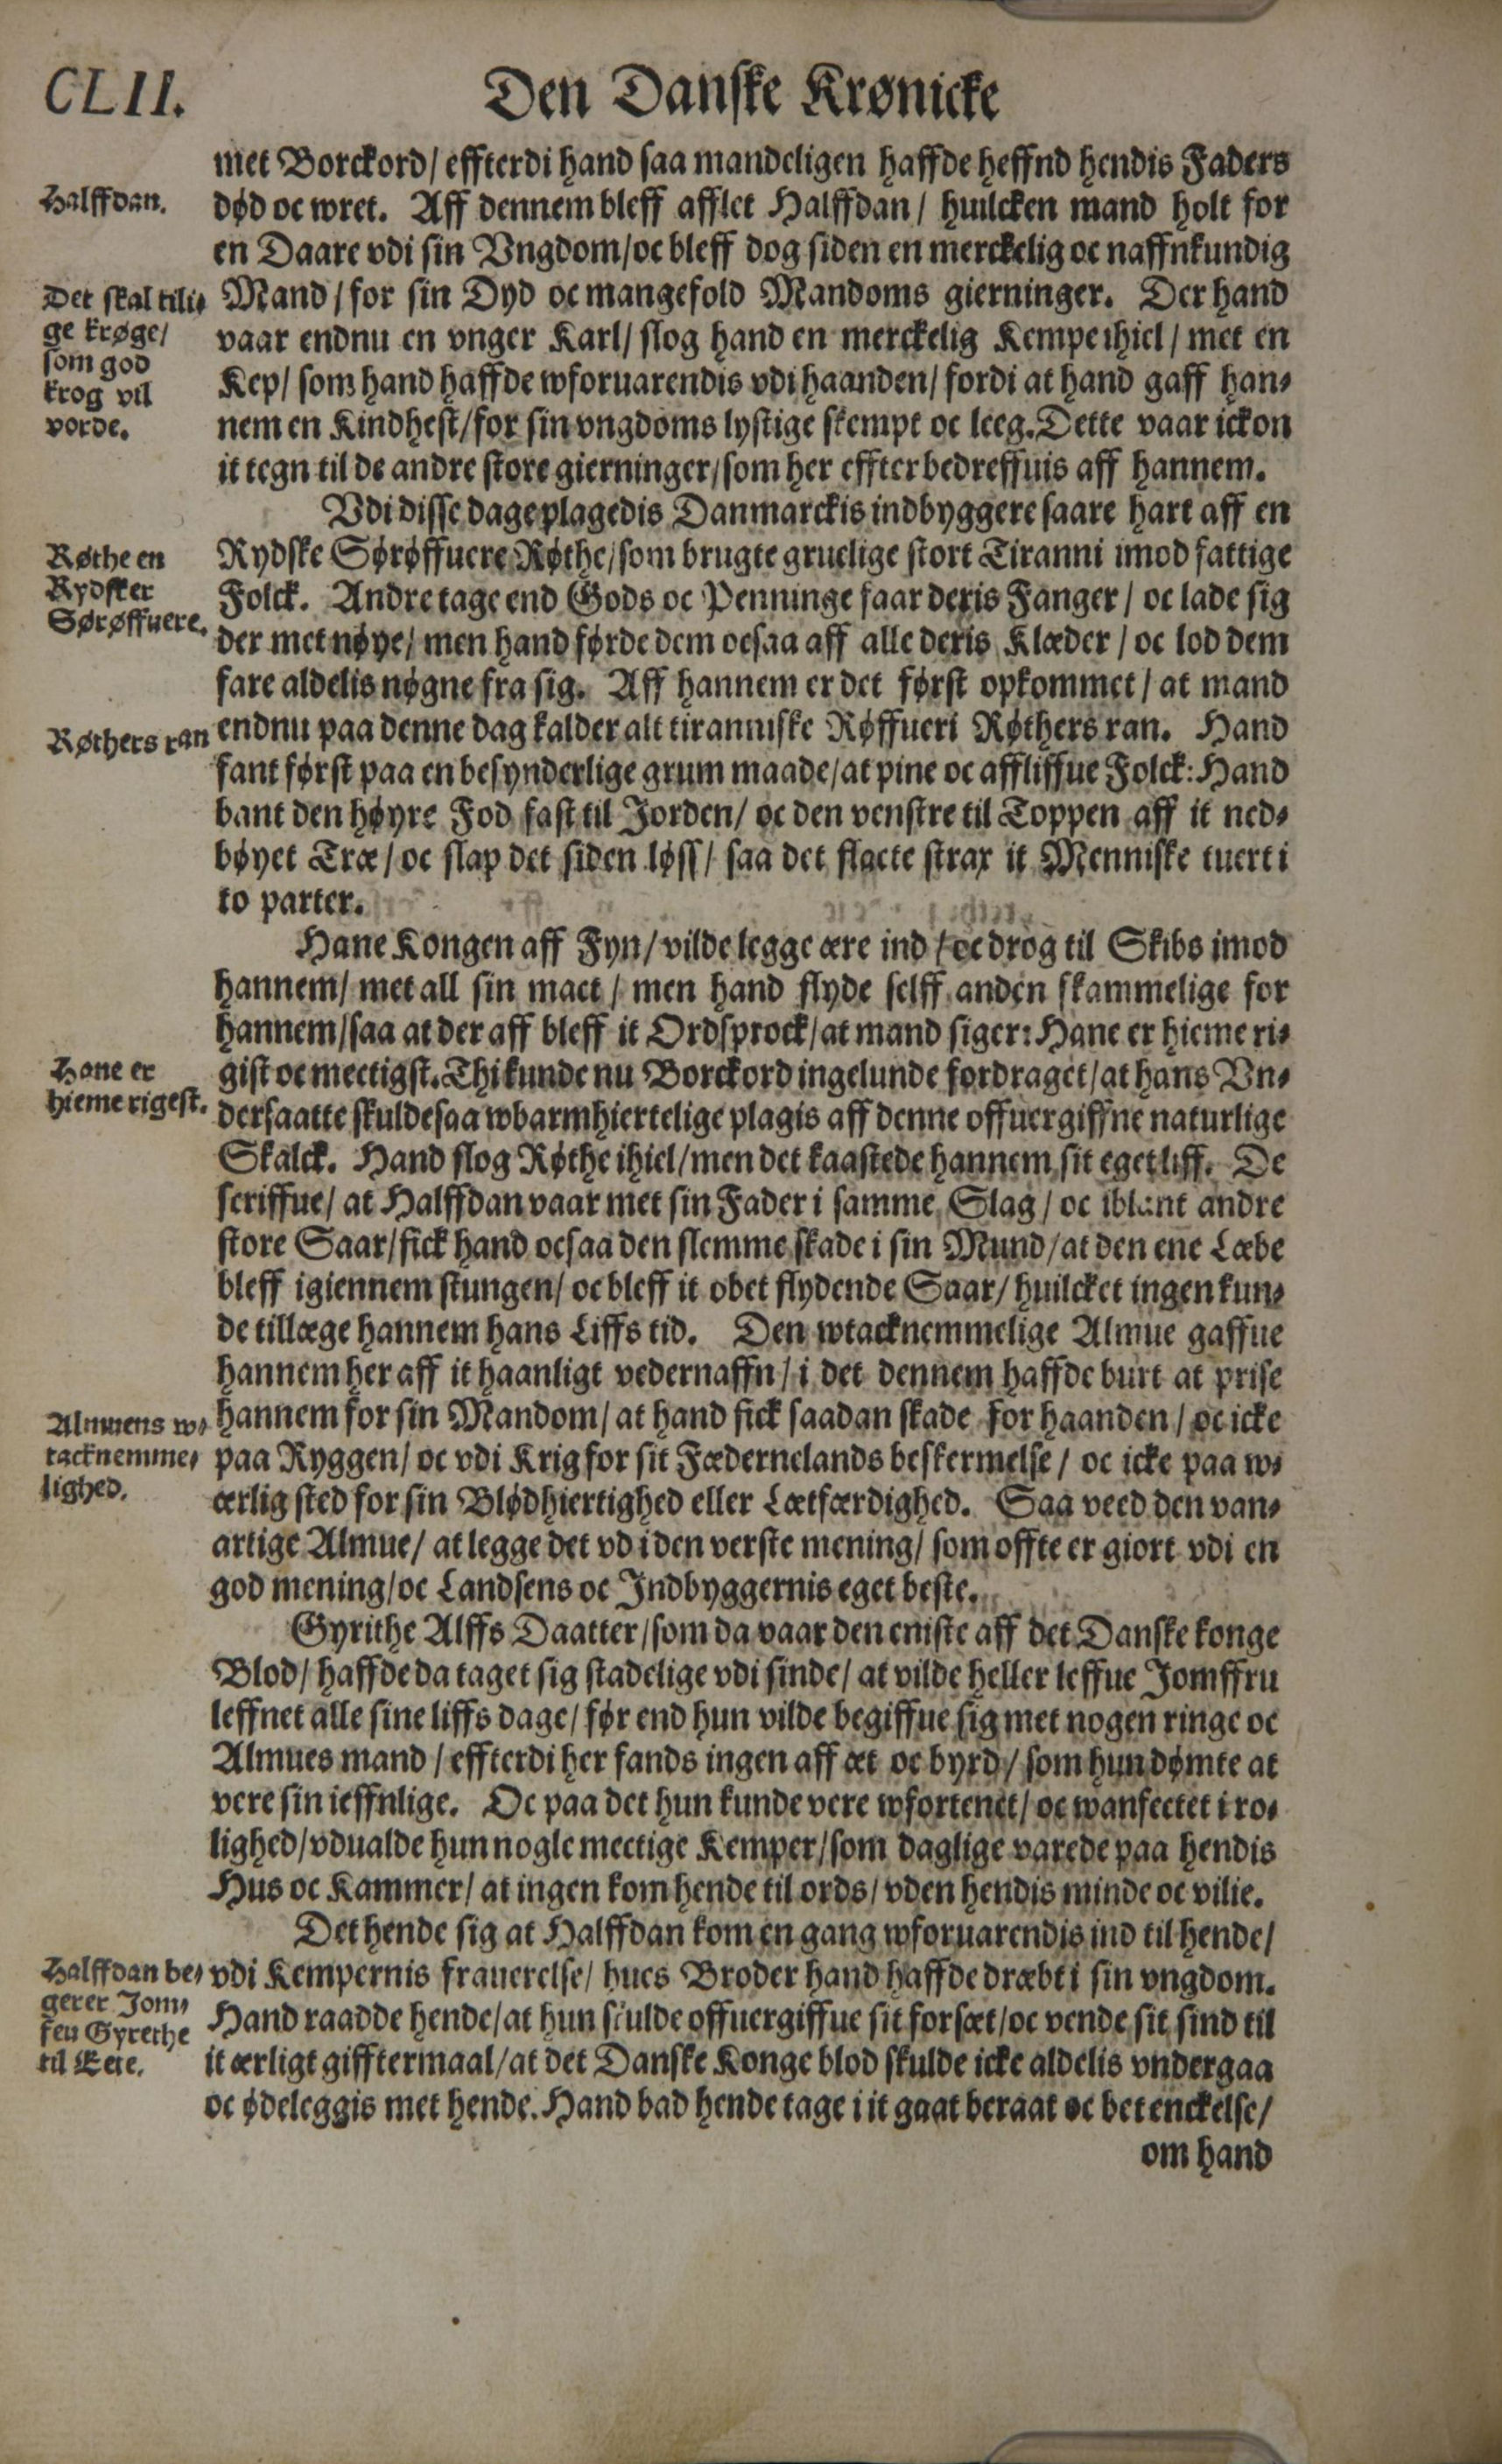 CLII.
Den Danske Krønicke
met Borckord/ effterdi hand saa mandeligen haffde heffnd hendis Faders
Halffdan.
død oc wret. Aff dennem bleff afflet Halffdan/ huilcken mand holt for
en Daare vdi sin Vngdom/ oc bleff dog siden en merckelig oc naffnkundig
Det skal tili-
ge krøge/
som god
krog vil
vorde.
Mand/ for sin Dyd oc mangefold Mandoms gierninger. Der hand
vaar endnu en vnger Karl/ slog hand en merckelig Kempe ihiel/ met en
Kep/ som hand haffde wforuarendis vdi haanden/ fordi at hand gaff han-
nem en Kindhest/ for sin vngdoms lystige skempt oc leeg. Dette vaar ickon
it tegn til de andre store gierninger/ som her effter bedreffuis aff hannem.
Vdi disse dage plagedis Danmarckis indbyggere saare hart aff en
Røthe en
Rydsker
Sørøffuere.
Rydske Sørøffuere Røthe/ som brugte gruelige stort Tiranni imod fattige
Folck. Andre tage end Gods oc Penninge faar deris Fanger/ oc lade sig
der met nøye/ men hand førde dem ocsaa aff alle deris Klæder/ oc lod dem
fare aldelis nøgne fra sig. Aff hannem er det først opkommet/ at mand
Røthers ran
endnu paa denne dag kalder alt tiranniske Røffueri Røthers ran. Hand
fant først paa en besynderlige grum maade/ at pine oc affliffue Folck: Hand
bant den høyre Fod fast til Jorden/ oc den venstre til Toppen aff it ned-
bøyet Træ/ oc slap det siden løss/ saa det flacte strax it Menniske tuert i
to parter.
Hane Kongen aff Fyn/ vilde legge ære ind/ oc drog til Skibs imod
hannem/ met all sin mact/ men hand flyde selff anden skammelige for
hannem/ saa at der aff bleff it Ordsprock/ at mand siger: Hane er hieme ri-
Hane er
hieme rigest.
gist oc mectigst. Thi kunde nu Borckord ingelunde fordraget/ at hans Vn-
dersaatte skulde saa wbarmhiertelige plagis aff denne offuergiffne naturlige
Skalck. Hand slog Røthe ihiel/ men det kaastede hannem sit eget liff. De
scriffue/ at Halffdan vaar met sin Fader i samme Slag/ oc iblant andre
store Saar/ fick hand ocsaa den slemme skade i sin Mund/ at den ene Læbe
bleff igiennem stungen/ oc bleff it obet flydende Saar/ huilcket ingen kun-
de tillæge hannem hans Liffs tid. Den wtacknemmelige Almue gaffue
hannem her aff it haanligt vedernaffn/ i det dennem haffde burt at prise
Almuens w-
tacknemme-
lighed.
hannem for sin Mandom/ at hand fick saadan skade for haanden/ oc icke
paa Ryggen/ oc vdi Krig for sit Fædernelands beskermelse/ oc icke paa w-
ærlig sted for sin Blødhiertighed eller Lætfærdighed. Saa veed den van-
artige Almue/ at legge det vd i den verste mening/ som offte er giort vdi en
god mening/ oc Landsens oc Indbyggernis eget beste.
Gyrithe Alffs Daatter/ som da vaar den eniste aff det Danske konge
Blod/ haffde da taget sig stadelige vdi sinde/ at vilde heller leffue Jomffru
leffnet alle sine liffs dage/ før end hun vilde begiffue sig met nogen ringe oc
Almues mand/ effterdi her fands ingen aff æt oc byrd/ som hun dømte at
vere sin ieffnlige. Oc paa det hun kunde vere wfortenct/ oc wanfectet i ro-
lighed/ vdualde hun nogle mectige Kemper/ som daglige varede paa hendis
Hus oc Kammer/ at ingen kom hende til ords/ vden hendis minde oc vilie.
Det hende sig at Halffdan kom en gang wforuarendis ind til hende/
Halffdan be-
gerer Jom-
fru Gyrethe
til Ecte.
vdi Kempernis frauerelse/ hues Broder hand haffde dræbt i sin vngdom.
Hand raadde hende/ at hun skulde offuergiffue sit forsæt/ oc vende sit sind til
it ærligt gifftermaal/ at det Danske Konge blod skulde icke aldelis vndergaa
oc ødeleggis met hende. Hand bad hende tage i it gaat beraat oc betenckelse/
om hand